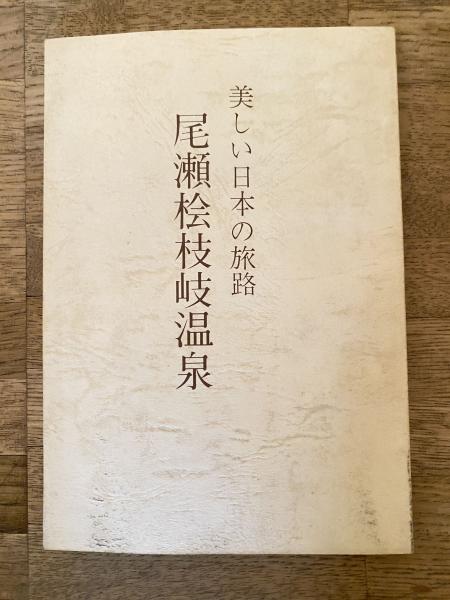 美しい日本の旅路
尾瀬桧枝岐温泉